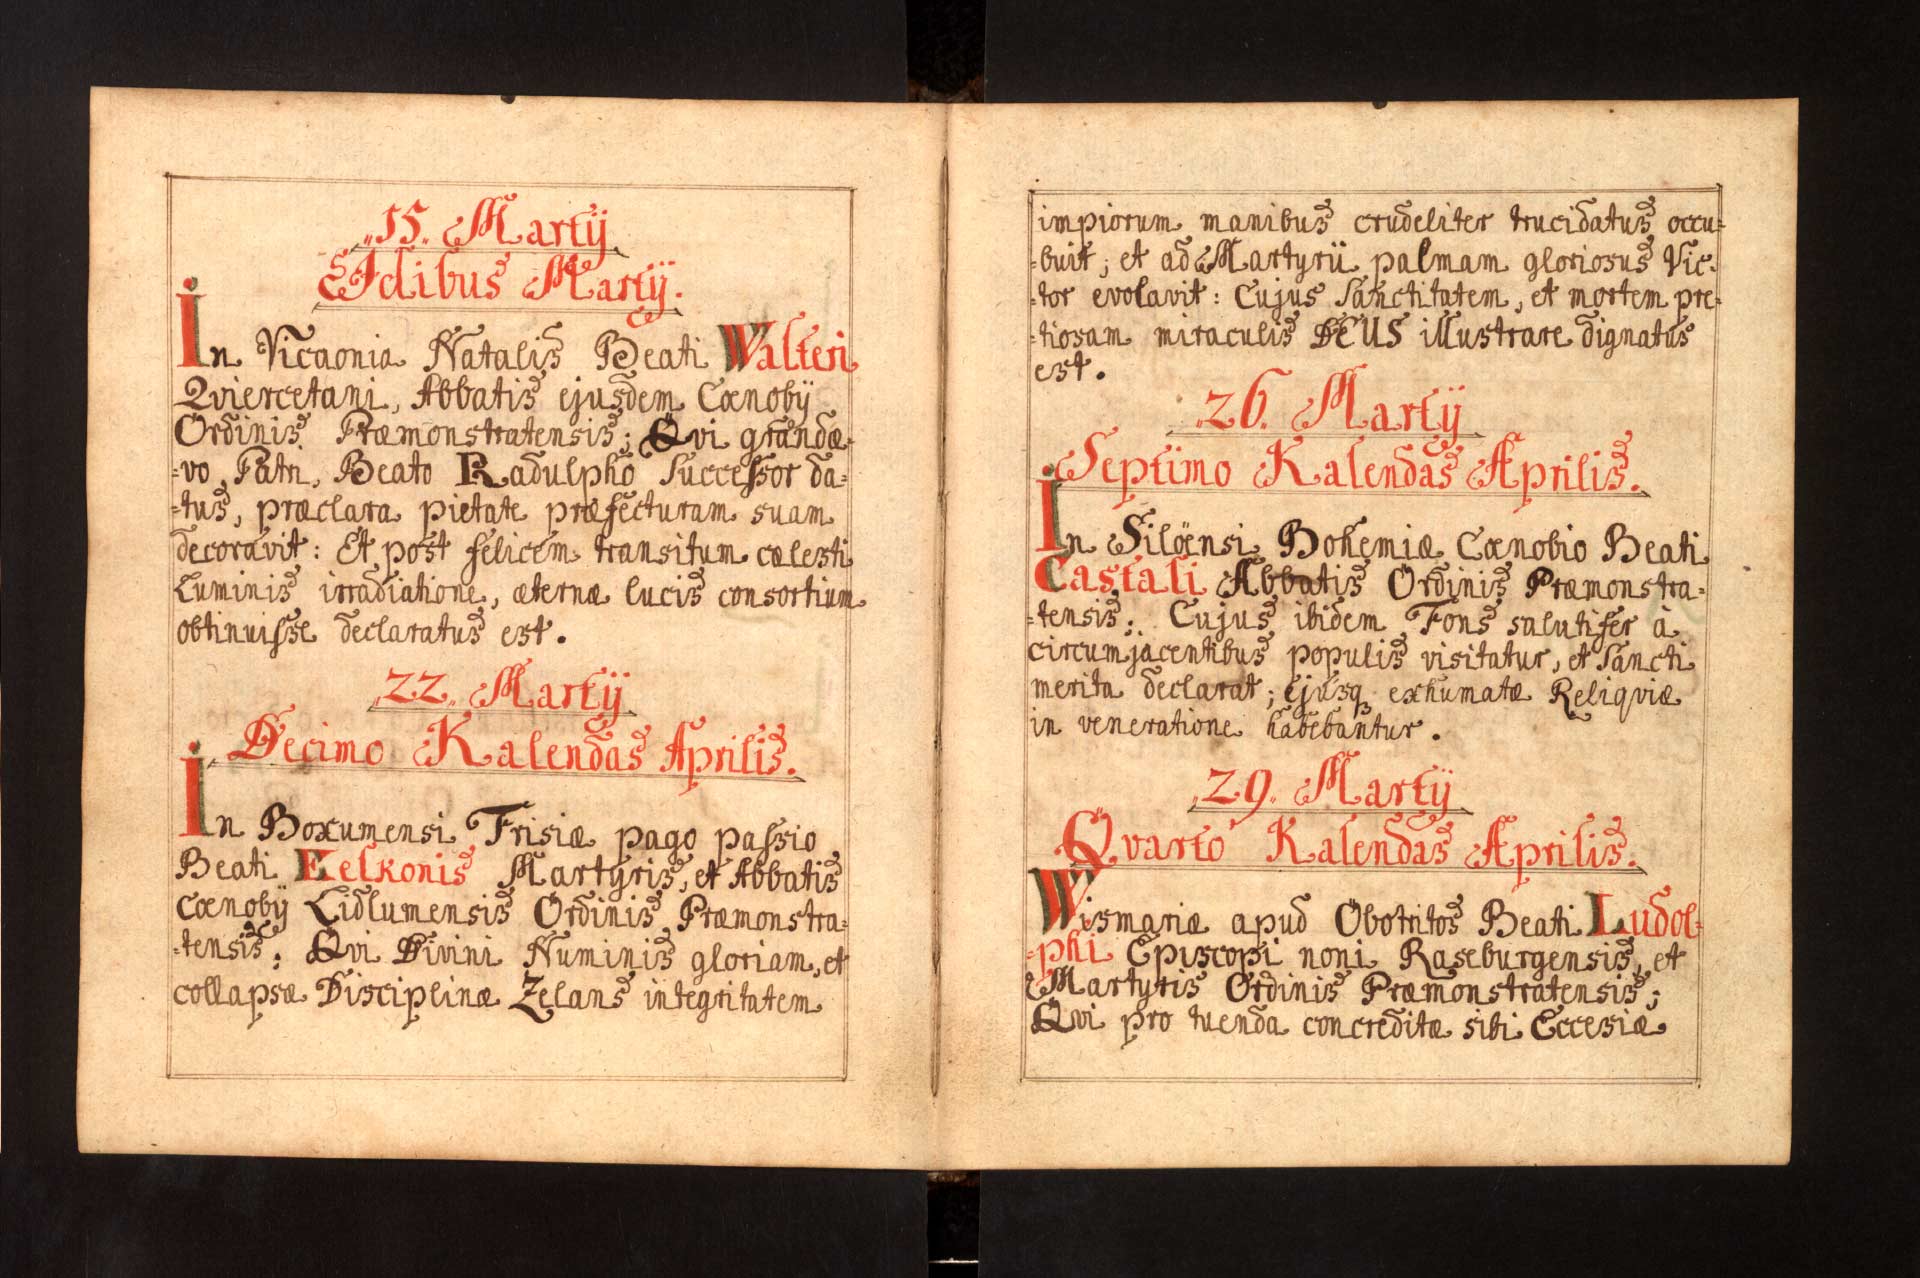 „15„ Martÿ
Idibus Martÿ.
In Vicaonia Natalis Beati Walteri
Qviercetani, Abbatis ejusdem Cœnobÿ
Ordinis Præmonstratensis; Qvi grandæ-
-vo Patri, Beato Radulpho Successor da-
-tus, præclara pietate præfecturam suam
decoravit: Et post felicem transitum cælesti
Luminis irradiatione, æternæ lucis consortium
obtinuisse declaratus est.
„22„ Martÿ
Decimo Kalendas Aprilis.
In Boxumensi Frisiæ pago passio
Beati Eelkonis Martyris, et Abbatis
Cœnobÿ Lidlumensis Ordinis Præmonstra-
-tensis; Qvi Divini Numinis gloriam, et
collapsæ Disciplinæ Zelans integritatem
impiorum manibus crudeliter trucidatus occu-
-buit; et ad Martyrii palmam gloriosus Vic-
-tor evolavit: Cujus Sanctitatem, et mortem pre-
-tiosam miraculis DEUS illustrare dignatus
est.
„26. Martÿ
Septimo Kalendas Aprilis.
In Siloënsi Bohemiæ Cœnobio Beati
Castali Abbatis Ordinis Præmonstra-
-tensis; Cujus ibidem Fons salutifer à
circumjacentibus populis visitatur, et Sancti
merita declarat; ejusq exhumatæ Reliqviæ
in veneratione habebantur.
„29„ Martÿ
Qvarto Kalendas Aprilis.
Wismariæ apud Obotritos Beati Ludol-
-phi Episcopi noni Raseburgensis, et
Martyris Ordinis Præmonstratensis;
Qvi pro tuenda concreditæ sibi Eccesiæ